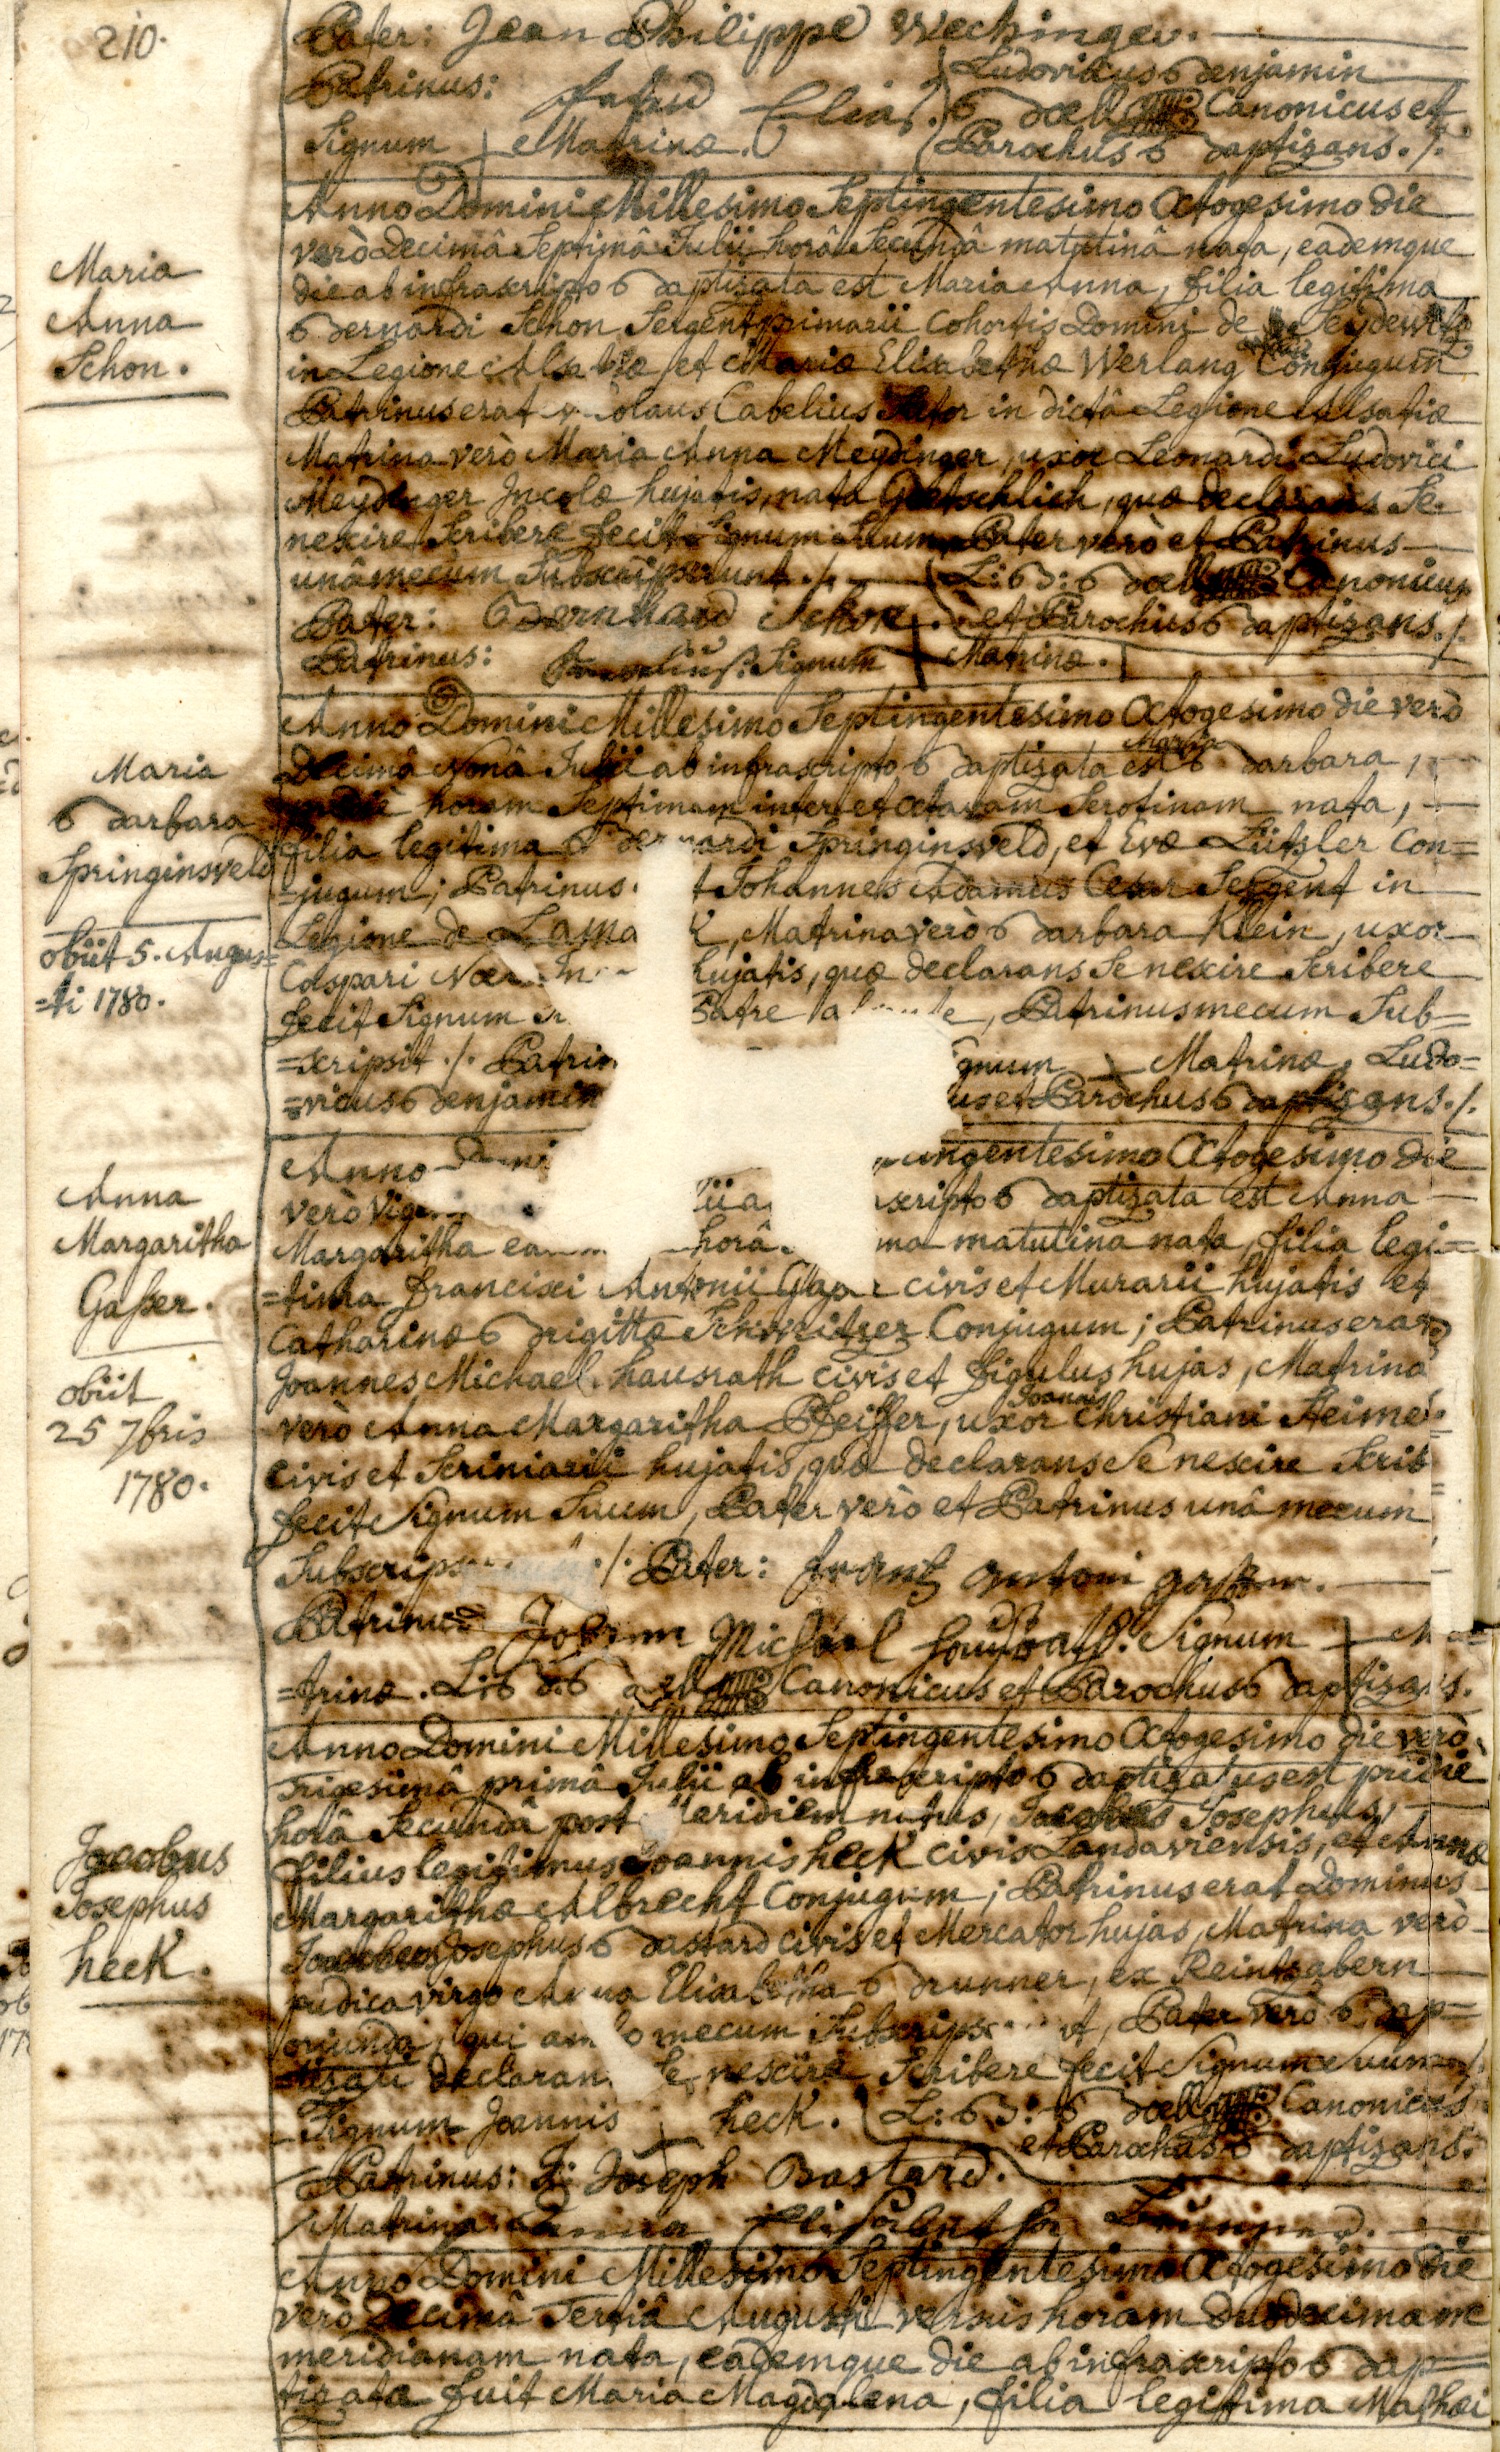 210.
Pater: Jean Philippe Wechinger.
Patrinus: Elias. Ludovicus Benjamin
Boell Canonicus et
Signum + Matrinæ. Parochus Baptizans ./.
Maria
Anna
Schon.
Anno Domini Millesimo Septingentesimo Octogesimo die
verò decimâ Septimâ Julii horâ Secundâ matutinâ nata, eademque
die ab infrascripto Baptizata est Maria Anna, filia legitima
Bernardi Schon Sergent primarii Cohortis Domini de Seydewitz
in Legione Alsatiæ et Mariæ Elisabethæ Werlang Conjugum
Patrinus erat Nicolaus Cabelius in dictâ Legione Alsatiæ
Matrina verò Maria Anna Meydinger, uxor Leonardi Ludovici
Meydinger Incolæ hujatis, nata Gottschlich, quæ declarans Se
nescire Scribere fecit Signum Suum, Pater verò et Patrinus
unâ mecum Subscripserunt ./. L: B: Boell Canonicus
Pater: Bernhard Schon. et Parochus Baptizans ./.
Patrinus: Signum + Matrinæ.
Maria
Barbara
Springinsveld
obiit 5. Augus=
=ti 1780.
Anno Domini Millesimo Septingentesimo Octogesimo die verò
Decimâ Nonâ Julii ab infrascripto Baptizata est Maria Barbara,
pridiè horam Septimam inter et octavam Serotinam nata,
filia legitima Bernardi Springinsveld, et Evæ Lützler Con=
=jugum; Patrinus Johannes Adamus Cesar Sergent in
Legione de Lama , Matrina verò Barbara Klein, uxor
Caspari hujatis, quæ declarans Se nescire Scribere
fecit Signum Patre , Patrinus mecum Sub=
=scripsit ./. Patrin gnum + Matrinæ, Ludo=
=vicus Benjamin us et Parochus Baptizans ./.
Anna
Margaritha
Gaßer.
obiit
25 7bris
1780.
Anno Domini ingentesimo Octogesimo die
verò lii a scripto Baptizata est Anna
Margaritha horâ ma matutina nata, filia legi=
=tima Francisci Antonii civis et Murarii hujatis et
Catharinæ Brigittæ Schweitzer Conjugum; Patrinus erat
Joannes Michael hausrath civis et figulus hujas, Matrina
verò Anna Margaritha Pfeiffer, uxor Joannis Christiani
civis et Scriniarii hujatis, quæ declarans Se nescire Scrib
fecit Signum Suum, Pater verò et Patrinus unâ mecum
Subscrips ./. Pater: frantz antoni gaßer.
Patrinus Johann Michael haußrath. Signum + Ma=
=trinæ. L: B: Boell Canonicus et Parochus Baptizans.
Jacobus
Josephus
heck.
Anno Domini Millesimo Septingentesimo Octogesimo die verò
Trigesimâ primâ Julii ab infrascripto Baptizatus est pridiè
horâ Secundâ post Meridiem natus, Jacobus Josephus,
filius legitimus Joannis heck civis Landaviensis, et Annæ
Margarithæ Albrecht Conjugum; Patrinus erat Dominus
Jacobus Josephus Bastard civis et Mercator hujas, Matrina verò
pudica virgo Anna Elisabetha Brunner, ex Reintzabern
oriunda, qui ambo mecum Subscrips t, Pater verò Bap=
=tisati declaran Se nescire Scribere fecit Signum Suum ./.
Signum Joannis + heck. L: B: Boell Canonicus
et Parochus Baptizans.
Patrinus: J: Joseph Bastard.
Matrina: Anna Elisabetha
Anno Domini Millesimo Septingentesimo Octogesimo die
verò Decimâ Tertiâ Augusti versùs horam duodecimam
meridianam nata, eademque die ab infrascripto Bap=
tizata fuit Maria Magdalena, filia legitima Mathæi